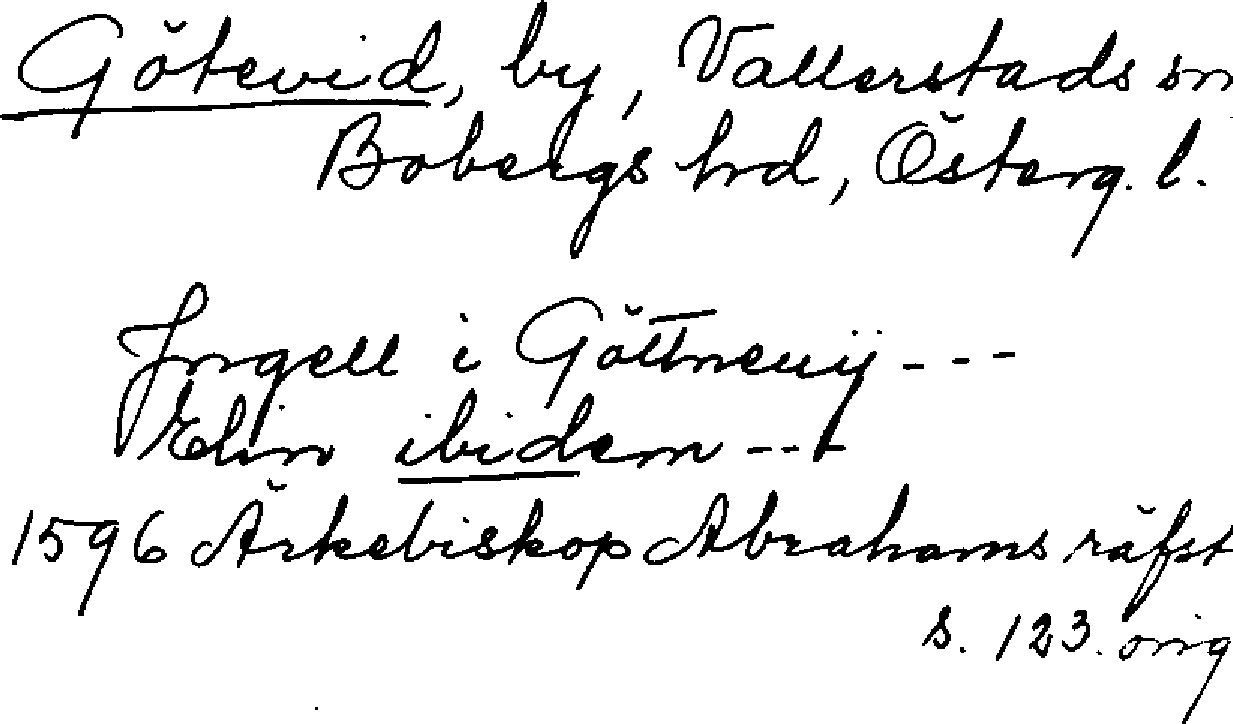 Götevid, by, Vallerstads sn
Bobergs hrd, Österg. l.
Ingell i Göttneuij - - -
Elin ibidem - - -
1596 Ärkebiskop Abrahams räfst
s. 123. orig